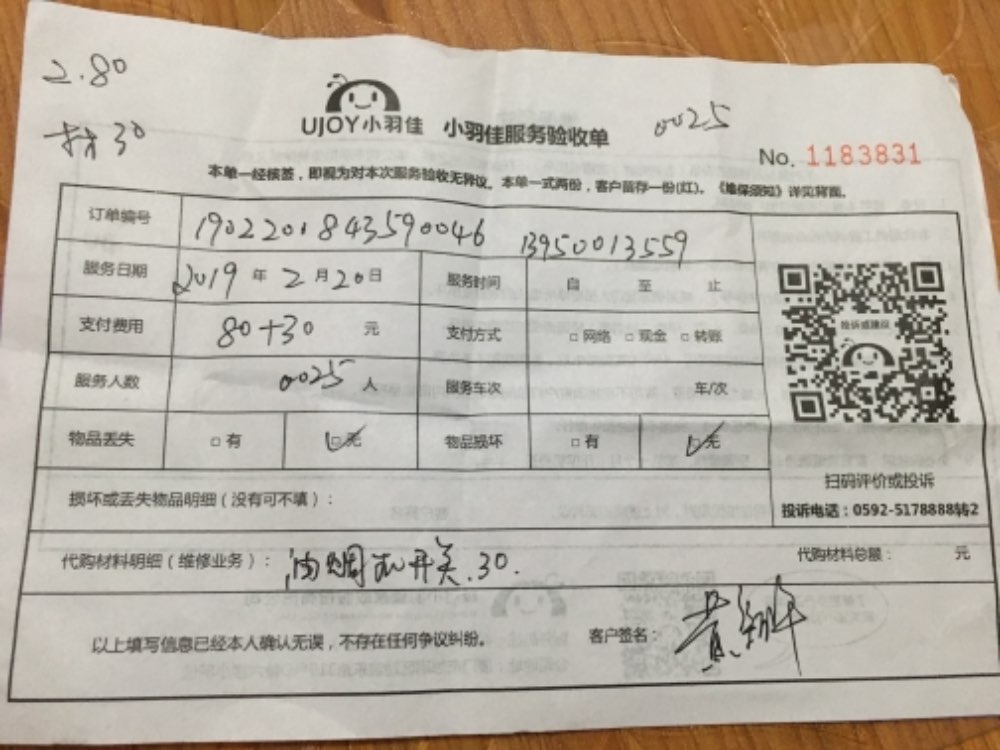 2.80
材30
UJOY小羽佳 小羽佳服务验收单
0025
No. 1183831
本单一经核签，即视为对本次服务验收无异议。本单一式两份，客户留存一份(红)。《维保须知》详见背面。
订单编号 1902201843590046 13950013559
服务日期 2019年2月20日 服务时间 自 至 止
支付费用 80+30 元 支付方式 □网络 □现金 □转账
投诉或建议
服务人数 0025人 服务车次 车/次
物品丢失 □有 ☑无 物品损坏 □有 ☑无
扫码评价或投诉
损坏或丢失物品明细（没有可不填）：
投诉电话：0592-5178888转2
代购材料明细（维修业务）：油烟机开关.30. 代购材料总额： 元
以上填写信息已经本人确认无误，不存在任何争议纠纷。 客户签名：黄